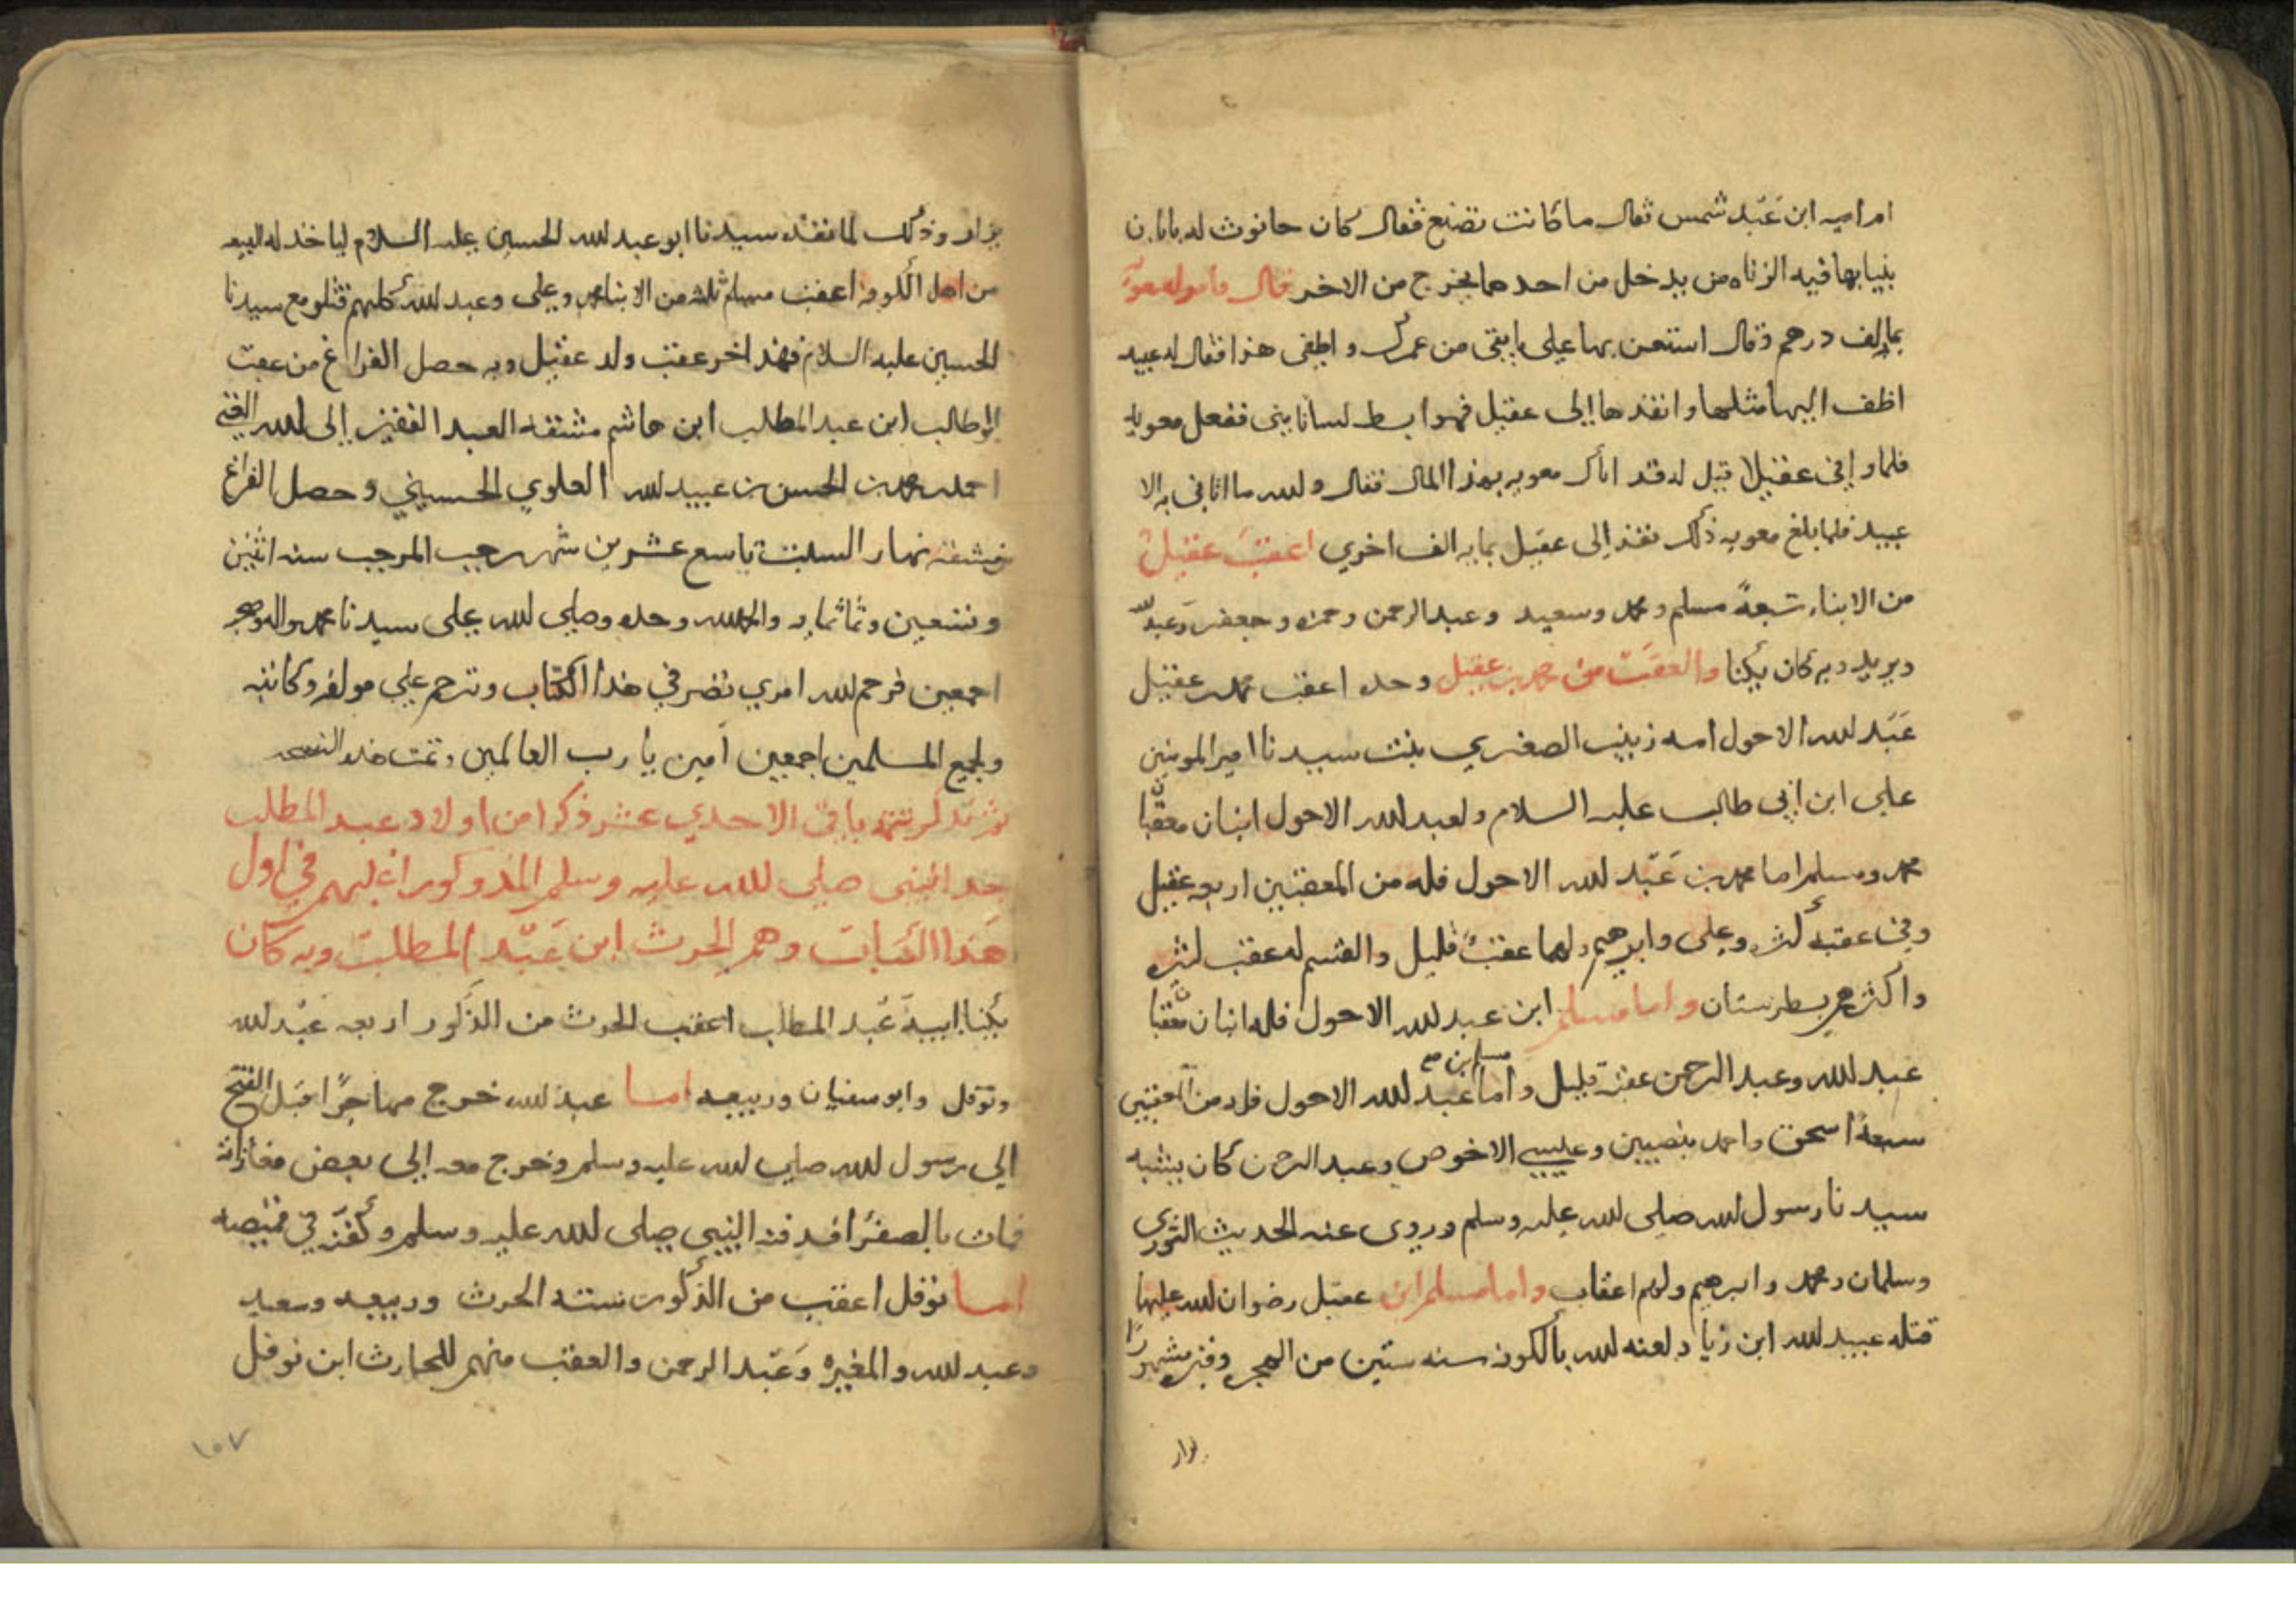 امراميه ابن عَبْد شمس ثقال ماكانت تصنع فقال كان حانوت له بابان
بنيابها فيه الزناه من يدخل من احدهما يخرج من الاخر قال فامر له معويه
بمايه الف درهم وقال استعن بها على مابقى من عمرك واطفى هذا فقال له عبيد
اظف اليها مثلها وانفذها إلى عقيل فهو ابسط لسانا بنى ففعل معويه
فلما وافى عقيلا قيل له قد اتاك معويه بهذا المال فقال والله ما اتانى به الا
عبيد فلما بلغ معويه ذلك نفذ إلى عقيل بمايه الف اخري اعقبَ عقيل
من الابناء تسعةً مسلم ومحمد وسعيد وعبدالرحمن وحمزه وجعفر وَعَبْدالله
ويزيد وبه كان يكنا والعقبَ من محمد بن عقيل وحده اعقب محمد بن عقيل
عَبْد الله الاحول امه زينب الصغري بنت سيدنا امير المومنين
على ابن ابي طالب عليه السلام ولعبد الله الاحول ابنان معقبان
محمد ومسلم اما محمد بن عَبْد الله الاحول فله من المعقبين اربعه عقيل
وفي عقبه كثره وعلى وابرهيم ولهما عقبٌ قليل والقسم له عقب كثره
واكثرهم بطبرستان واما مسلم ابن عبد الله الاحول فله ابنان معقبان
عبد الله وعبد الرحمن عقبه قليل واما عبد الله الاحول فله من المعقبين
مسلم ابن صح
سبعة اسحق واحمد بنصيبين وعليسي الاخوص وعبد الرحمن كان يشبه
سيدنا رسول الله صلى الله عليه وسلم وروى عنه الحديث الثوري
وسلمان ومحمد وابرهيم ولهم اعقاب واما مسلم ابن عقيل رضوان الله عليهما
قتله عبيد الله ابن زياد لعنه الله بالكوفه سنه ستين من الهجره وقبره مشهورًا
يزار
يزار وذلك لما نفذه سيدنا ابو عبد الله الحسين عليه السلام لياخذ له البيعه
من اهل الكوفه اعقب مسلم ثلثه من الابنا محمد وعلى وعبد الله كلهم قتلو مع سيدنا
الحسين عليه السلام فهذ اخر عقب ولد عقيل وبه حصل الفراغ من عقب
ابوطالب ابن عبد المطلب ابن هاشم مشقه العبد الفقير إلى الله الغني
احمد بن محمد بن الحسن بن عبيد الله العلوي الحسيني وحصل الفراغ
من مشقه نهار السبت تاسع عشرين شهر رجب المرجب سنه اثنين
وتسعين وثماثمايه والحمد لله وحده وصلى الله على سيدنا محمد واله وصحبه
اجمعين فرحم الله امري نضر في هذا الكتاب وترحم على مولفه وكاتبه
ولجميع المسلمين اجمعين آمين يا رب العالمين وتمت هذه النسخه
ثم نذكر تتمه باقي الاحدي عشر ذكرا من اولاد عبد المطلب
جد النبى صلى الله عليه وسلم المذوكور اغلبهم في اول
هَذا الكتاب وهم الحرث ابن عَبْد المطلب وبه كان
يكنا ابيه عَبْد المطلب اعقب الحرث من الذكور اربعه عَبْد الله
ونوفل وابوسفيان وربيعه اما عبد الله خرج مهاجرًا قبل الفتح
الى رسول الله صلى الله عليه وسلم وخرج معه إلى بعض مغازاته
فمات بالصفرَا فدفنه النبى صلى الله عليه وسلم وكفّنه في قميصه
اما نوفل اعقب من الذكور سته الحرث وربيعه وسعيد
وعبد الله والمغيره وَعَبْد الرحمن والعقب منهم للحارث ابن نوفل
١٥٧